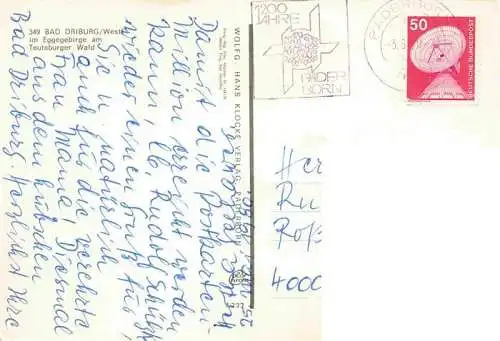 349 BAD DRIBURG/Westf.
im Eggegebirge am
Teutoburger Wald
Damit die Postkarten-
million erreicht werden
kann, lb. Rudolf Schütz,
wieder einen Gruß für
Sie u. natürlich
auch für die verehrte
Frau Mama! Diesmal
aus dem hübschen
Bad Driburg. Herzlichst Ihre
WOLFG. HANS KLOCKE VERLAG, PADERBORN
1200
JAHRE
PADER
BORN
PADERBORN
50
DEUTSCHE BUNDESPOST
Her
Ru
4000